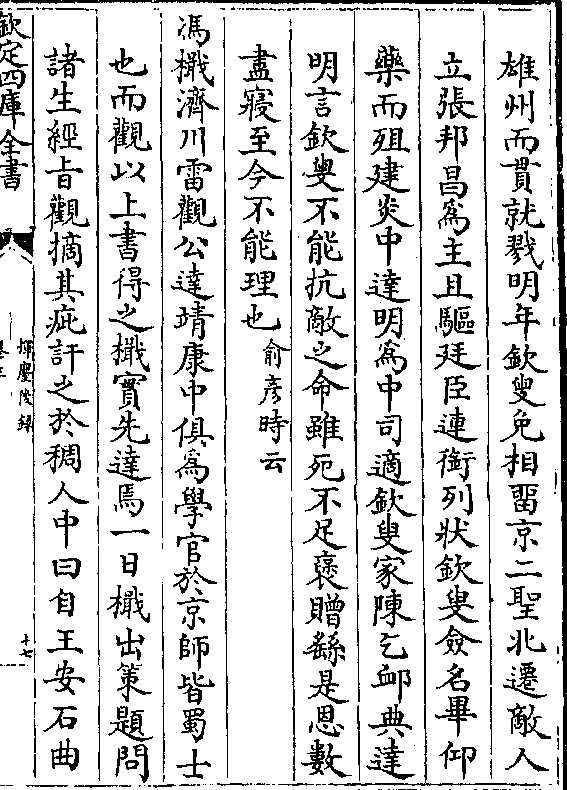 雄州而貫就戮明年欽叟免相留京二聖北遷敵人
立張邦昌爲主且驅廷臣連銜列狀欽叟僉名畢仰
藥而殂建炎中達明爲中司適欽叟家陳乞䘏典達
明言欽叟不能抗敵之命雖死不足褒贈繇是恩數
盡寢至今不能理也俞彦時云
馮檝濟川雷觀公達靖康中俱爲學官於京師皆蜀士
也而觀以上書得之檝實先達焉一日檝出策題問
諸生經旨觀摘其疵訐之於稠人中曰自王安石曲
欽定四庫全書
揮麈後録
十七